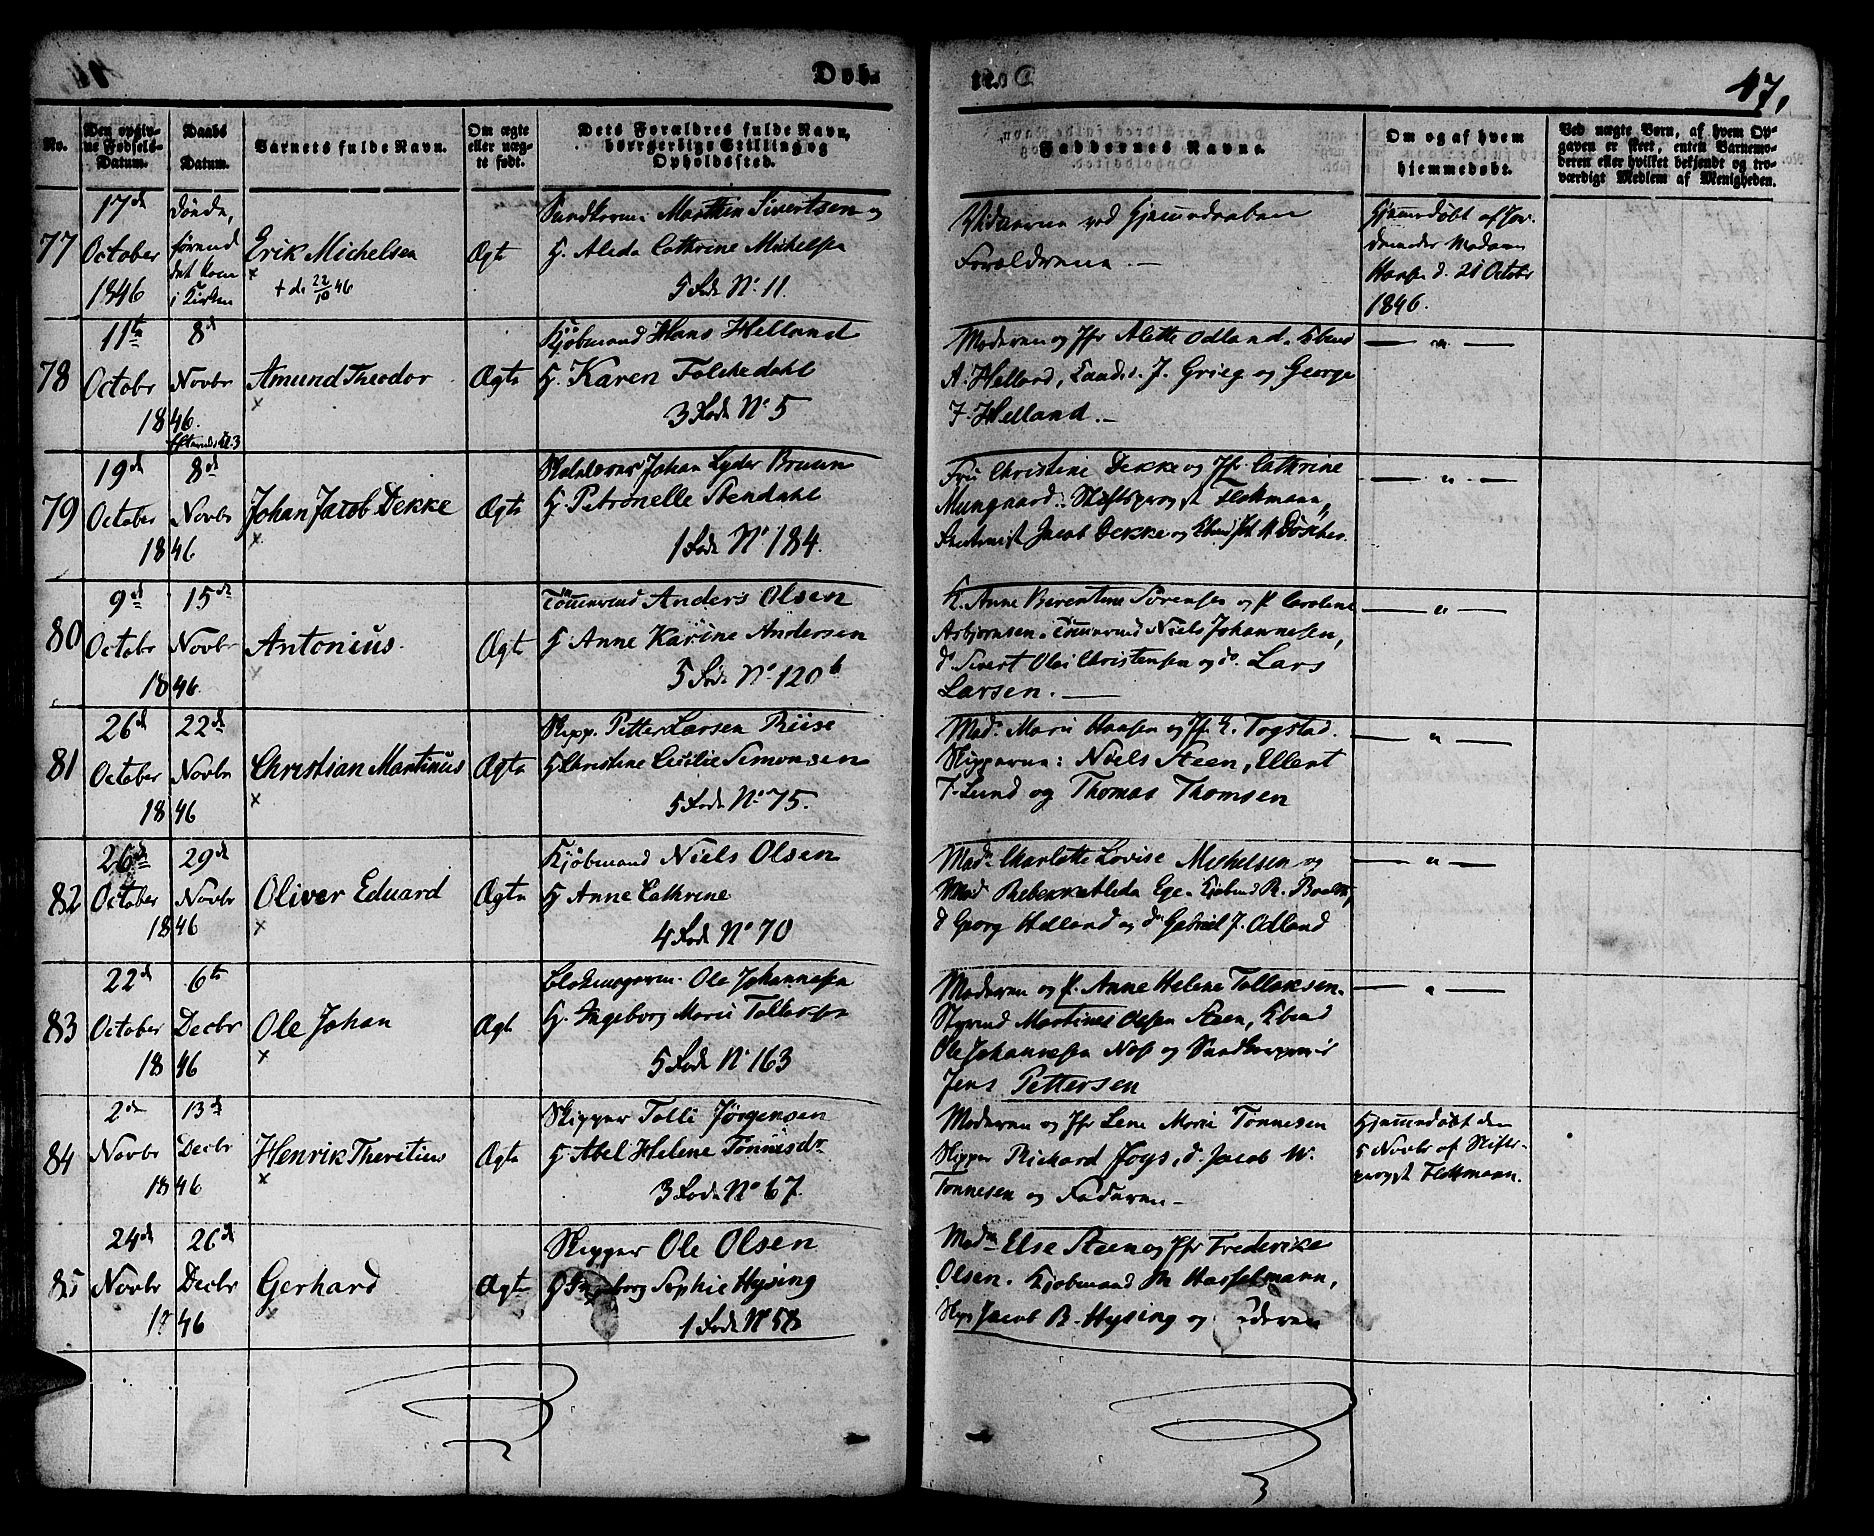 Døb.
47,
No.
Den opgiv-
ne Fødsels-
Datum.
Daabs
Datum.
Barnets fulde Navn.
Om ægte
eller uæg-
te født.
Dets Forældres fulde Navn,
borgerlige Stilling og
Opholdssted.
Faddernes Navne.
Om og af hvem
hjemmedøbt.
Ved uægte Børn, af hvem Op-
gaven er skeet, enten Barnemo-
deren eller hvilket bekjendt og tro-
værdigt Medlem af Menigheden.
77
17de
October
1846
Døde,
førend
det kom
i Kirken
Erik Michelsen
x
+ d. 22/10 46
Ægte
Marthin Sivertsen og
H. Aleda Cathrine Michelsen
5 Rode No 11.
Vidnerne ved Hjemmedaaben
Forældrene. —
Hjemmedøbt af Jor-
demoder Madam
d. 21 Octobr
1846.
78
11te
Octobr
1846.
8de
Novbr
Amund Theodor
x
Ægte
Kjøbmand Hans Helland
H. Karen Folkedahl
3 Rode No 5
Moderen og Jfr Alette Odland. Kbmd
A. Helland, Candid. J. Grieg og George
F. Helland. —
— " —
79
19de
October
1846
Efterm. Kl. 3
8de
Novbr
Johan Jacob Dekke
x
Ægte
Johan Lyder Bruun
H. Petronelle Stendahl
1 Rode No 184.
Fru Christine Dekke og Jfr Cathrine
Mungaard: Stiftsprovst Flokmann,
Jacob Dekke og
— " —
80
9de
Octobr
1846.
15de
Novbr
Antonius.
x
Ægte
Tømmermd Anders Olsen
H. Anne Karine Andersen
5 Rode No 120b
K. Anne Berentine Sørensen og P. Caroline
Asbjørnsen. Tømmermd Niels Johannesen,
do Sivert Olai Christensen og do. Lars
Larsen. —
— " —
81
26de
October
1846
22de
Novbr
Christian Martinus
x
Ægte
Skipp. Petter Larsen Riise
H Christine Cecilie Simonsen
5 Rode No 75.
Mad. Marie Hansen og Jfr. E. Togstad.
Skipperne: Niels Steen, Ellert
F. Lund og Thomas Thomsen
— " —
82
26de
October
1846
29de
Novbr
Oliver Eduard
x
Ægte
Kjøbmand Niels Olsen
H Anne Cathrine
4 Rode No 70
Mad. Charlotte Lovise Michelsen og
Mad Rebekka Aleda Ege. Kjøbmd R.
do Georg Helland og do Gabriel J. Odland
— " —
83
22de
October
1846
6te
Decbr
Ole Johan
x
Ægte
Ole Johannesen
H. Ingeborg Marie Tollaksen
5 Rode No 163
Moderen og P. Anne Helene Tollaksen.
Styrmd Martines Olsen Steen, Kbmd
Ole Johannesen Næs og
Jens Pettersen
— " —
84
2de
Novbr
1846
13de
Decbr
Henrik Theritius
x
Ægte
Skipper Tolli Jørgensen
H Abel Helene Tønnisdr
3 Rode No 67.
Moderen og Jfr Lene Marie Tønnesen
Skipper Richard Joys, d. Jacob W.
Tønnesen og Faderen —
Hjemmedøbt den
5 Novbr af Stifts-
provst Flokmann.
85
24de
Novbr
1846
26de
Decbr
Gerhard
x
Ægte
Skipper Ole Olsen
H Ingeborg Sophie Hysing
1 Rode No 58
Madm Else Steen og Jfr Frederike
Olsen. Kjøbmand M Hasselmann,
Skip Jacob B. Hysing og Faderen